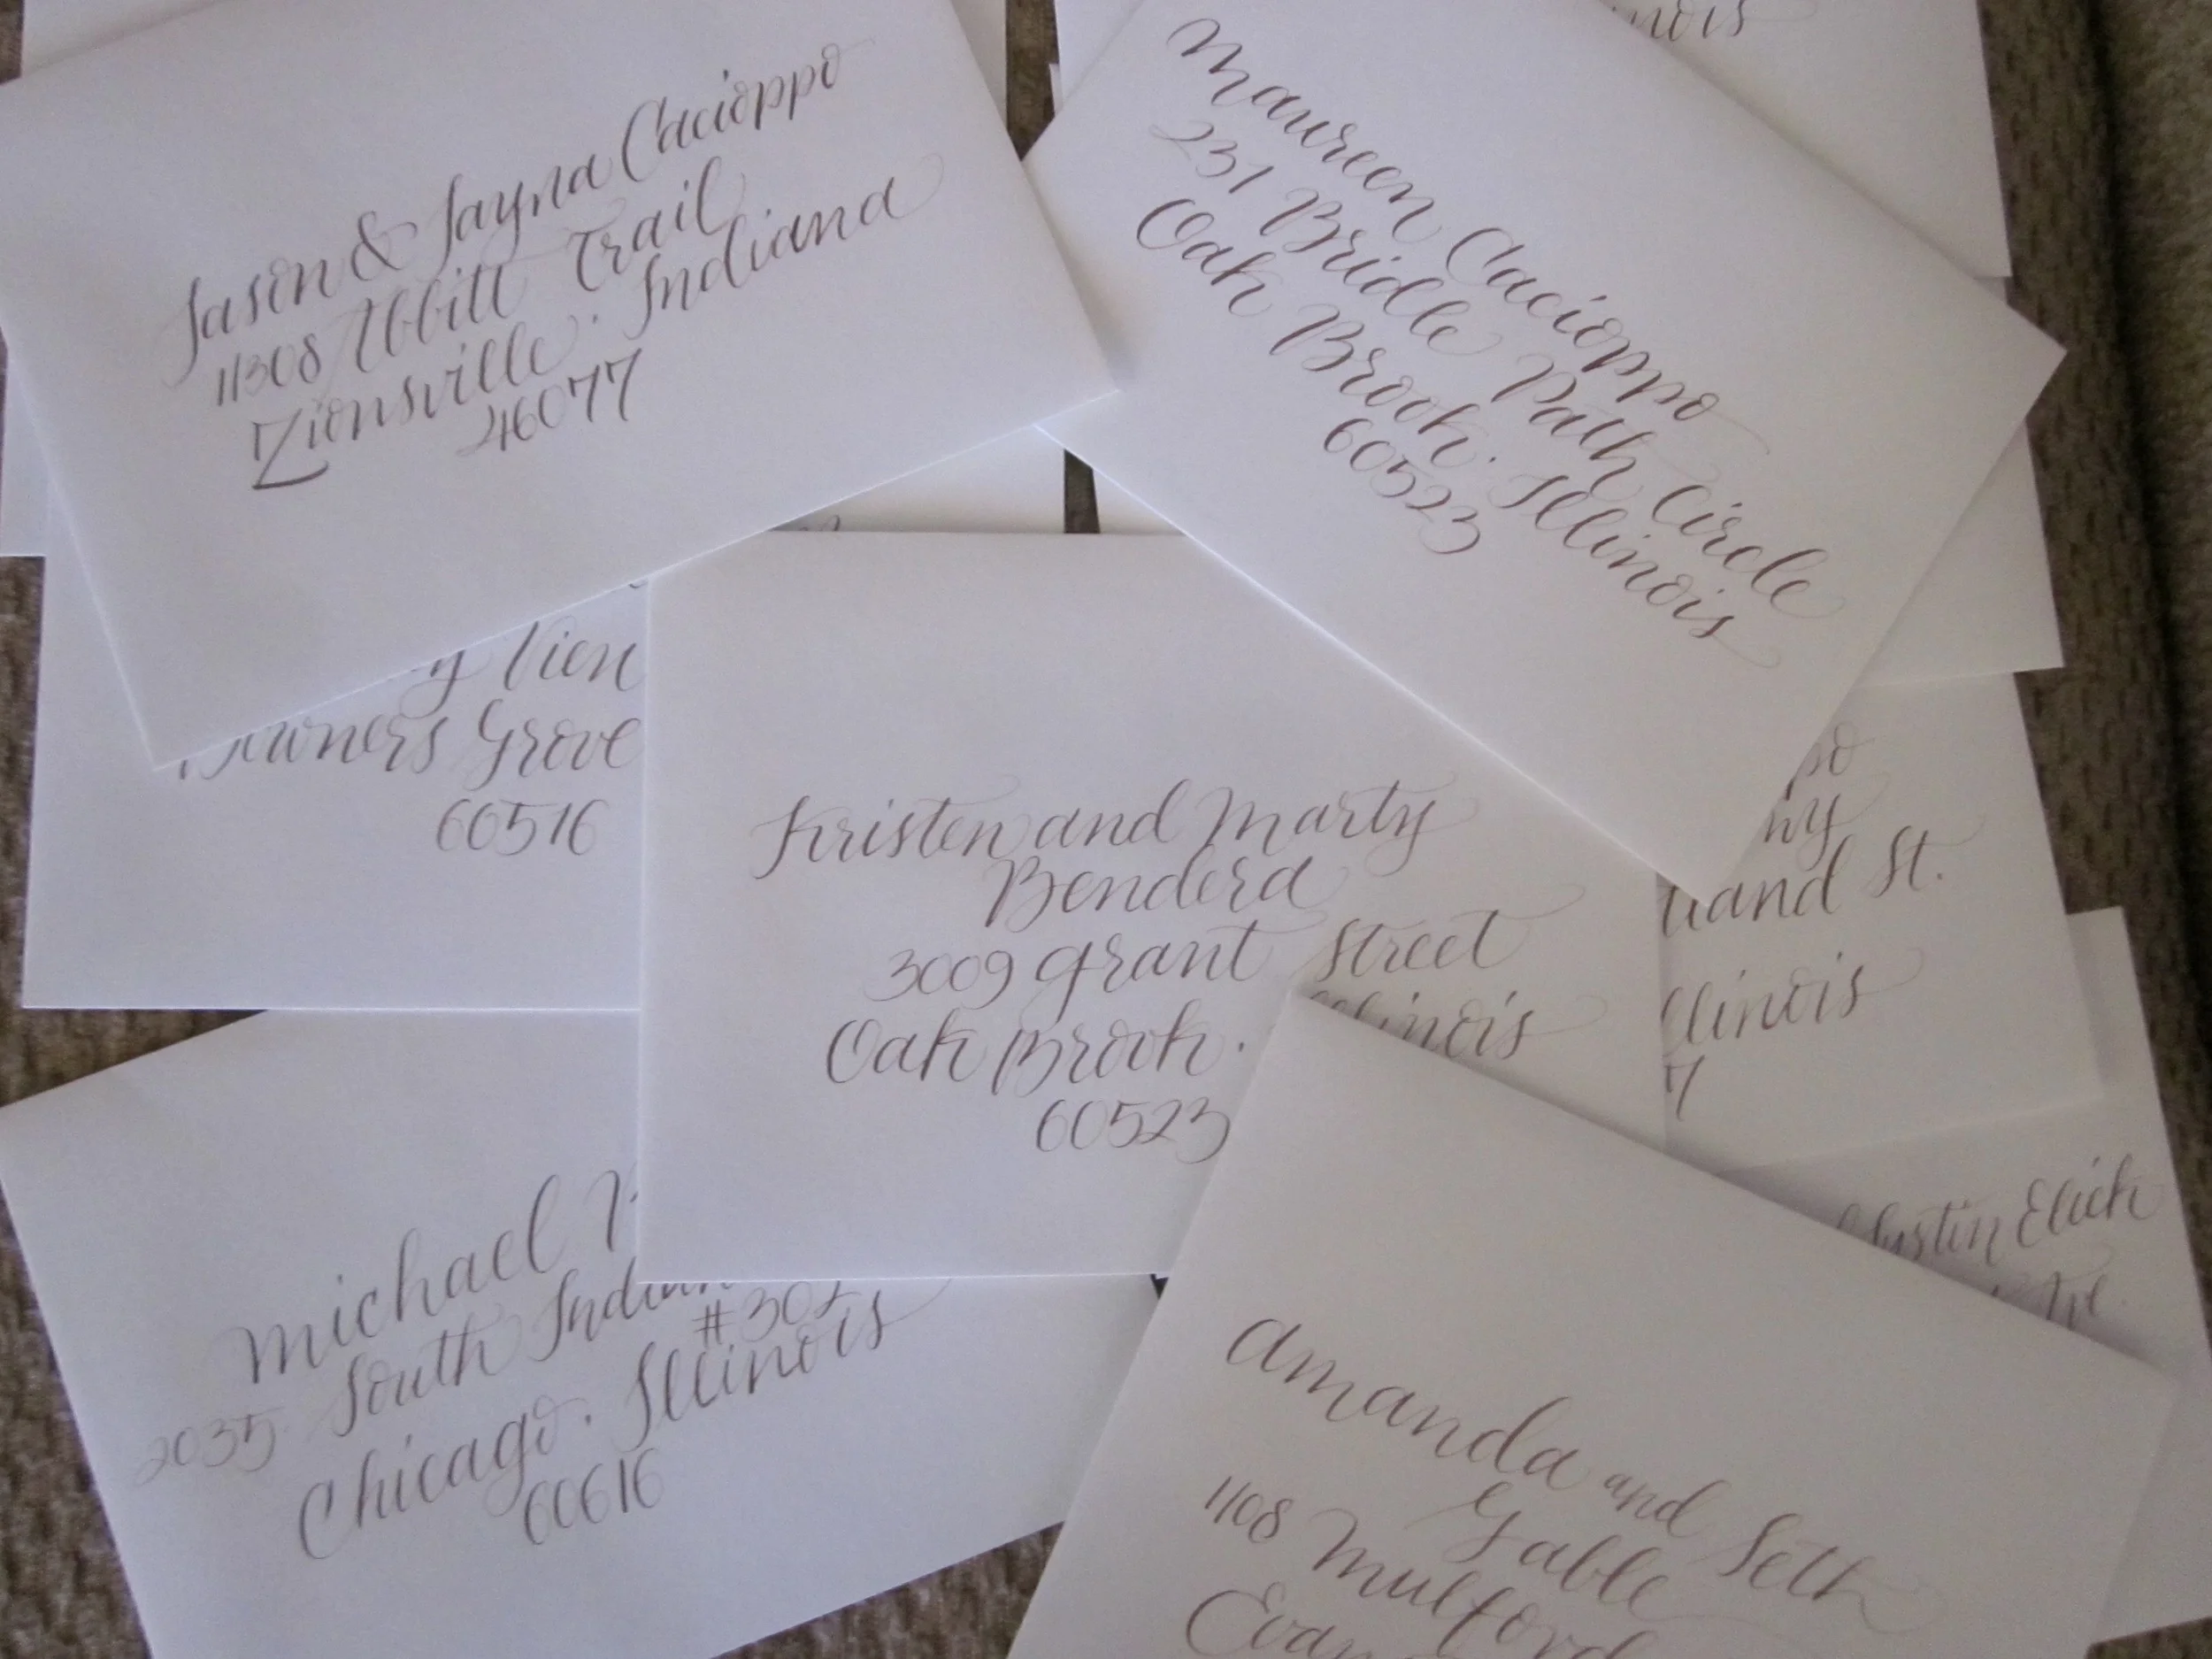 Jason & Jayna Cacioppo
11308 Abbitt Trail
Zionsville · Indiana
46077
Maureen Cacioppo
231 Bridle Path Circle
Oak Brook · Illinois
60523
Downers Grove
60516
Kristen and Marty
Bendera
3009 Grant Street
Oak Brook · Illinois
60523
St.
7
Justin Elich
Ave.
Michael
2035 South
#302
Chicago · Illinois
60616
Amanda and Seth
Gable
1108 Mulford